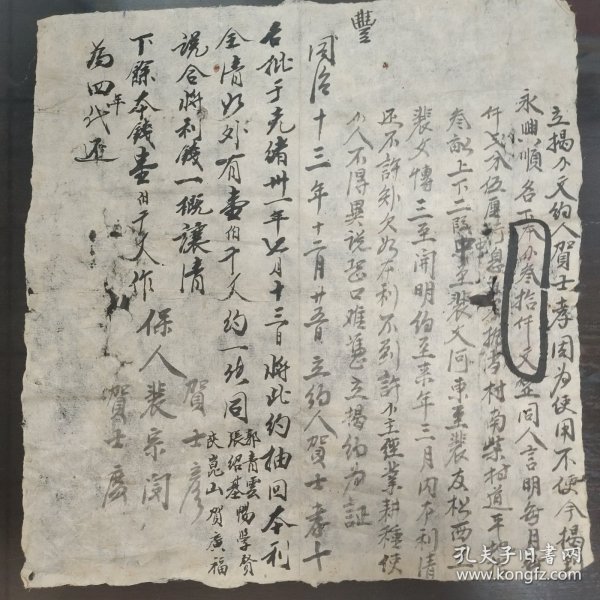 立揭錢文約人賀士孝因为使用不便今揭到
永興順名下本錢叁拾仟文整同人言明每月
仟文分伍厘行息 村南柴村道平地
叁畝上下二段東至裴文河東至裴友松西
裴文博三至開明約至来年三月内本利清
还不許外欠如本利不到許錢主經業耕種使
錢人不得異說恐口难憑立揭約为証
同治十三年十二月廿五日立約人賀士孝十
豐
名批于光緒卅一年七月十三日將此約抽回本利
全清如外有壹佰千文約一紙同
郭青雲 暢學賢
張紹基
崑山 賀廣福
說合將利錢一概讓清
下餘本錢壹佰千文作
为四年代还
賀士彦
保人裴宗閔
賀士慶
孔夫子旧书网
www.kongfz.com